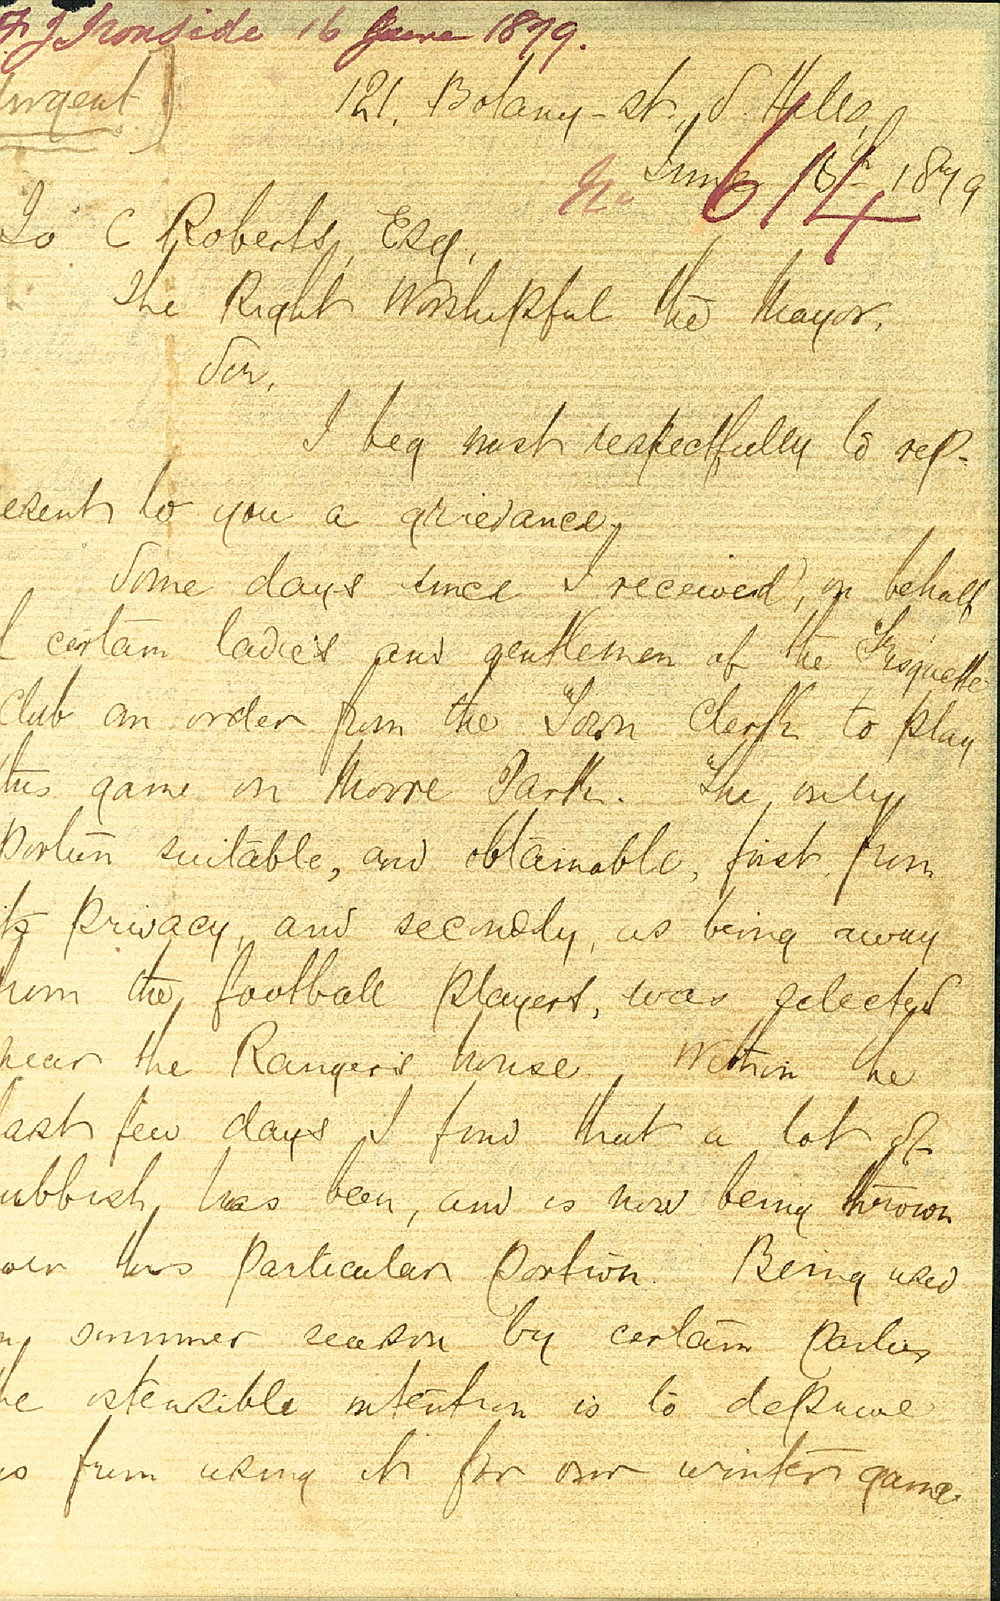 F J Ironside 16 June 1879.
Urgent)
121, Botany-st, S Hills,
June 16th 1879
No 614
To C Roberts, Esq,
The Right Worshipful the Mayor.
Sir,
I beg most respectfully to rep-
esent to you a grievance,
Some days since I received, on behalf
f certain ladies and gentlemen of the
Club an order from the Town Clerk to play
this game on Moore Park. The only
portion suitable, and obtainable, first from
its privacy, and secondly, as being away
from the football players, was selected
near the Ranger's house. Within the
last few days I find that a lot of
ubbish has been, and is now being thrown
over this particular portion. Being used
in summer season by certain parties
he ostensible intention is to deprive
us from using it for our winter game